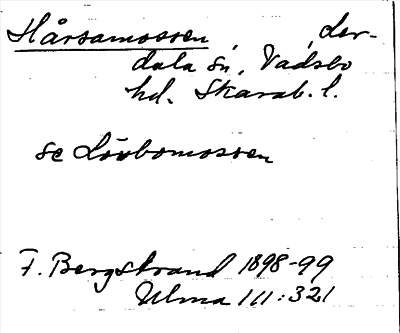 Hårsamossen, Ler-
dala sn, Vadsbo
hd. Skarab. l.
se Lövbomossen
F. Bergstrand 1898-99
Ulma 111:321